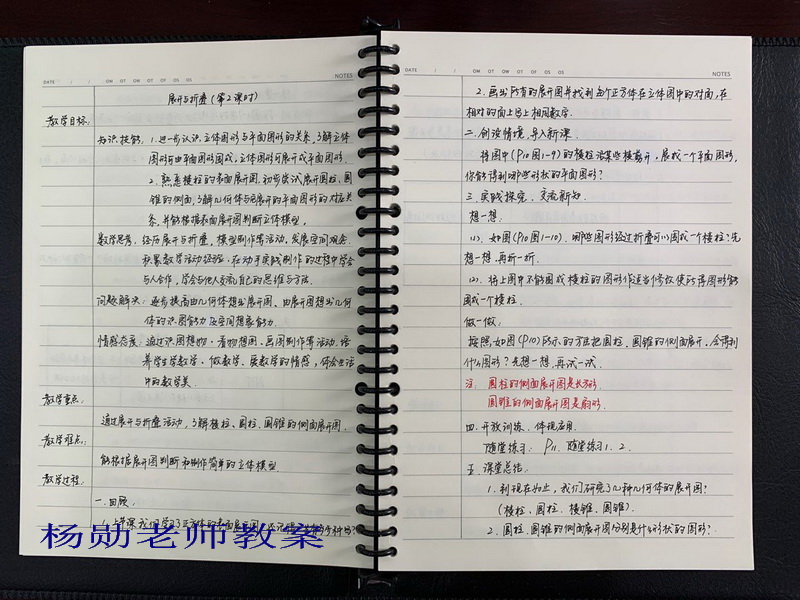 DATE / / OM OT OW OT OF OS OS NOTES
展开与折叠(第2课时)
教学目标:
知识技能: 1.进一步认识立体图形与平面图形的关系,了解立体
图形可由平面图形围成,立体图形可展开成平面图形.
2.熟悉棱柱的表面展开图,初步尝试展开圆柱、圆
锥的侧面,了解几何体与它展开的平面图形的对应关
系,并能根据表面展开图判断立体模型.
数学思考: 经历展开与折叠、模型制作等活动,发展空间观念,
积累数学活动经验,在动手实践制作的过程中学会
与人合作,学会与他人交流自己的思维与方法.
问题解决: 逐步提高由几何体想出展开图、由展开图想出几何
体的识图能力及空间想象能力.
情感态度: 通过识图想物、看物想图、画图制作等活动,培
养学生学数学、做数学、爱数学的情感,体会生活
中的数学美.
教学重点:
通过展开与折叠活动,了解棱柱、圆柱、圆锥的侧面展开图.
教学难点:
能根据展开图判断和制作简单的立体模型.
教学过程:
一.回顾:
1.上节课我们学习了正方体的表面展开图
杨勋老师教案
DATE / / OM OT OW OT OF OS OS NOTES
2.画出所有的展开图并找到每个正方体在立体图中的对面,在
相对的面上写上相同数字.
二.创设情境,导入新课.
将图中(P10图1-9)的棱柱沿某些棱剪开,展成一个平面图形,
你能得到哪些形状的平面图形?
三.实践探究、交流新知.
想一想:
(1). 如图(P10图1-10). 哪些图形经过折叠可以围成一个棱柱?先
想一想,再折一折.
(2). 将上图中不能围成棱柱的图形作适当修改使所得图形能
围成一个棱柱.
做一做:
按照如图(P10)所示的方法把圆柱、圆锥的侧面展开,会得到
什么图形?先想一想,再试一试.
注: 圆柱的侧面展开图是长方形.
圆锥的侧面展开图是扇形.
四.开放训练、体现应用.
随堂练习: P11.随堂练习1.2.
五.课堂总结.
1.到现在为止,我们研究了几种几何体的展开图?
(棱柱、圆柱、棱锥、圆锥).
2.圆柱、圆锥的侧面展开图分别是什么形状的图形?